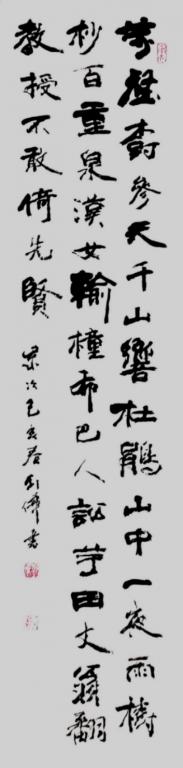 萬壑樹參天千山響杜鵑山中一夜雨樹
杪百重泉漢女輸橦布巴人訟芋田文翁翻
教授不敢倚先賢
歲次己亥春劉偉書